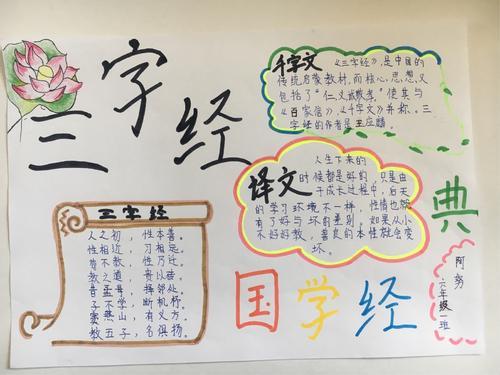 三字经
千字文 《三字经》,是中国的
传统启蒙教材,而核心思想又
包括了"仁、义,诚,敬,孝",使其与
《百家信》,《千字文》并称。三
字经的作者是王应麟.
译文 人生下来的
时候都是好的,只是由
于成长过程中,后天
的学习环境不一样,性情也就
有了好与坏的差别,如果从小
不好好教,善良的本性就会变
坏.
三字经
人之初,性本善。
性相近,习相远。
苟不教,性乃迁。
教之道,贵以专。
昔孟母,择邻处。
子不学,断机杼。
窦燕山,有义方。
教五子,名俱扬。
国学经典
阿努
六年级一班